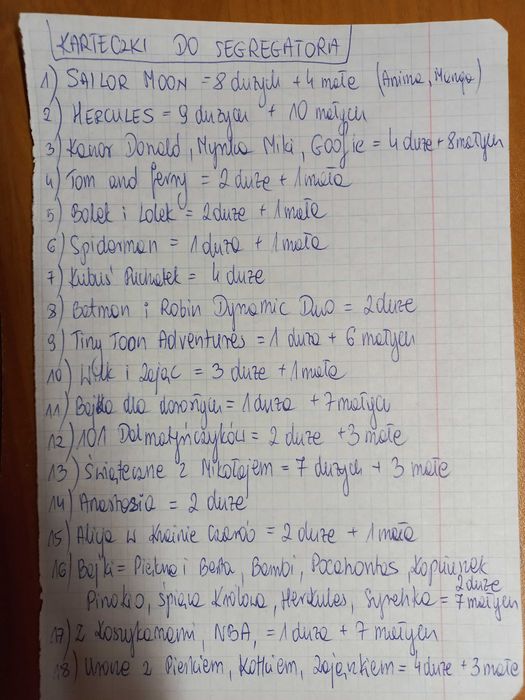 KARTECZKI DO SEGREGATORA
1) SAILOR MOON = 8 dużych + 4 małe (Anime, Manga)
2) HERCULES = 9 dużych + 10 małych
3) Kaczor Donald, Myszka Miki, Goofie = 4 duże + 8 małych
4) Tom and Jerry = 2 duże + 1 mała
5) Bolek i Lolek = 2 duże + 1 mała
6) Spiderman = 1 duża + 1 mała
7) Kubuś Puchatek = 4 duże
8) Batman i Robin Dynamic Duo = 2 duże
9) Tiny Toon Adventures = 1 duża + 6 małych
10) Wilk i Zając = 3 duże + 1 mała
11) Bajka dla dorosłych = 1 duża + 7 małych
12) 101 Dalmatyńczyków = 2 duże + 3 małe
13) Świąteczne z Mikołajem = 7 dużych + 3 małe
14) Anastazja = 2 duże
15) Alicja w Krainie Czarów = 2 duże + 1 mała
16) Bajki = Piękna i Bestia, Bambi, Pocahontas, Kopciuszek
2 duże
Pinokio, Śpiąca Królowa, Herkules, Syrenka = 7 małych
17) Z koszykarzami, NBA, = 1 duża + 7 małych
18) Urocze z Pieskiem, Kotkiem, Zajączkiem = 4 duże + 3 małe